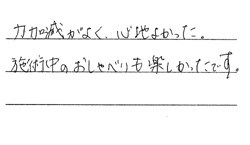 力加減がよく、心地よかった。
施術中のおしゃべりも楽しかったです。